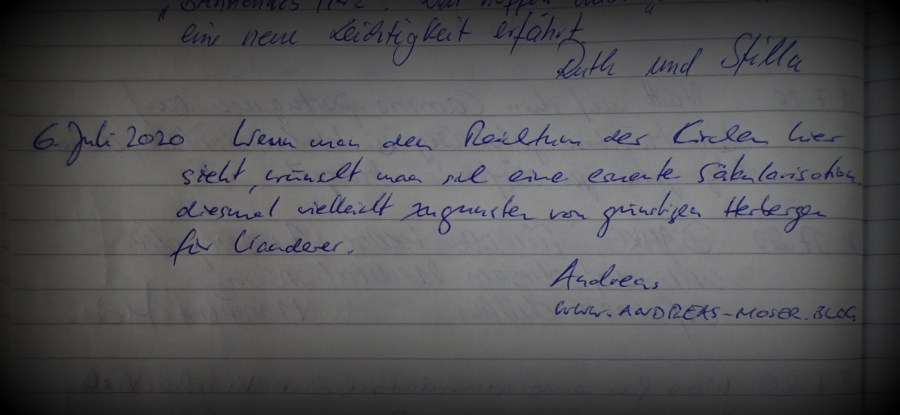 "Brennendes Herz". Wir hoffen dass
eine neue Leichtigkeit erfährt
Ruth und Stilla
6. Juli 2020 Wenn man den Reichtum der Kirchen hier
sieht, wünscht man sich eine erneute Säkularisation,
diesmal vielleicht zugunsten von günstigen Herbergen
für Wanderer.
Andreas
WWW.ANDREAS-MOSER.BLOG